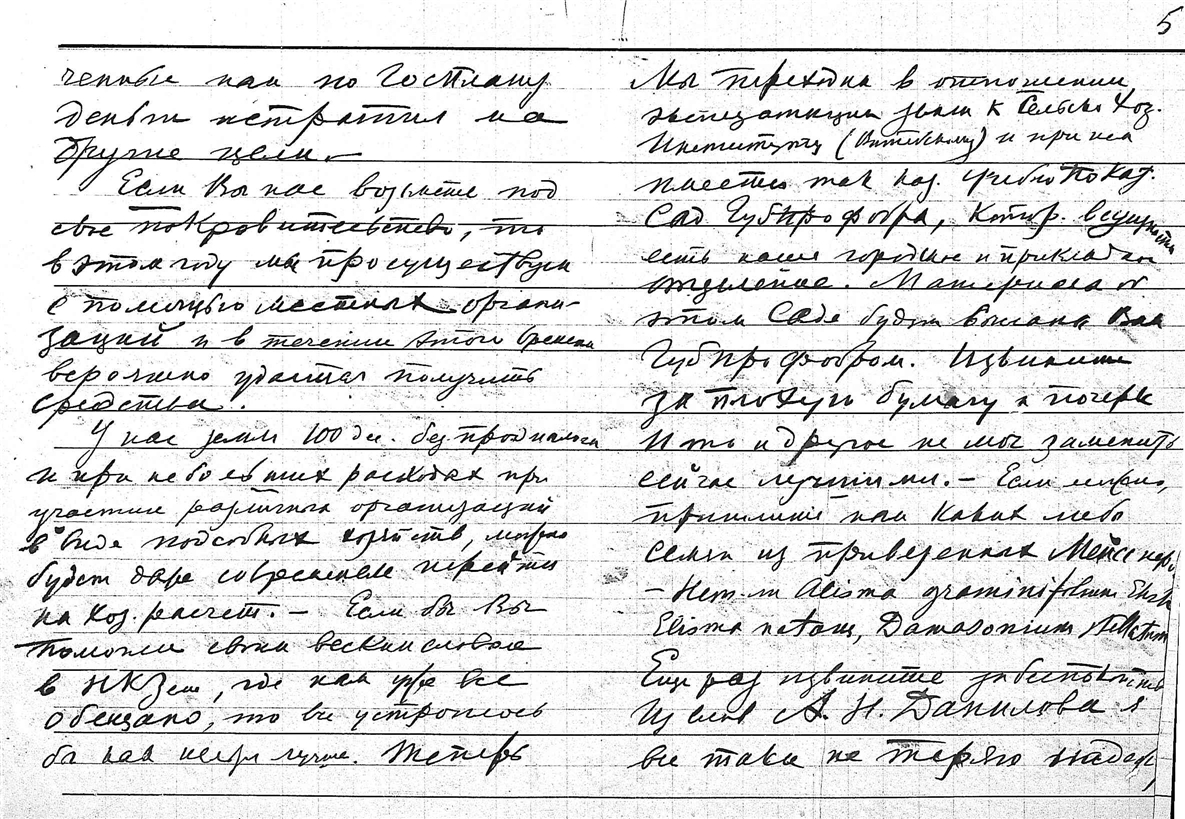 5
ченные нам по Госплану
деньги истратил на
другие цели.—
Если Вы нас возьмете под
свое покровительство, то
в этом году мы просуществуем
с помощью местных органи-
заций и в течении этого времени
вероятно удастся получить
средства.
У нас земли 100 дес. без продналога
и при небольших расходах при
участии различных организаций
в виде подсобных хозяйств, можно
будет даже со временем перейти
на хоз. расчет. — Если бы Вы
помогли своим веским словом
в НКЗем, где нам уже все
обещано, то все устроилось
бы как нельзя лучше. Теперь
Мы переходим в отношении
эксплоатации земли к Сельско Хоз.
Институту (Витебскому) и при нем
имеется так наз. учебно показ.
Сад Губпрофобра, котор. в сущности
есть наше городское и прикладное
отделение. Материал об
этом Саде будет выслан Вам
Губпрофобром. Извините
за плохую бумагу и почерк
И то и другое не мог заменить
сейчас лучшими. — Если можно,
пришлите нам каких либо
семян из привезенных
— Нет ли Alisma graminifolium Ehrh
Elisma natans, Damasonium stellatum
Еще раз извините за беспокойство
А. Н. Данилова я
все таки не теряю надежд